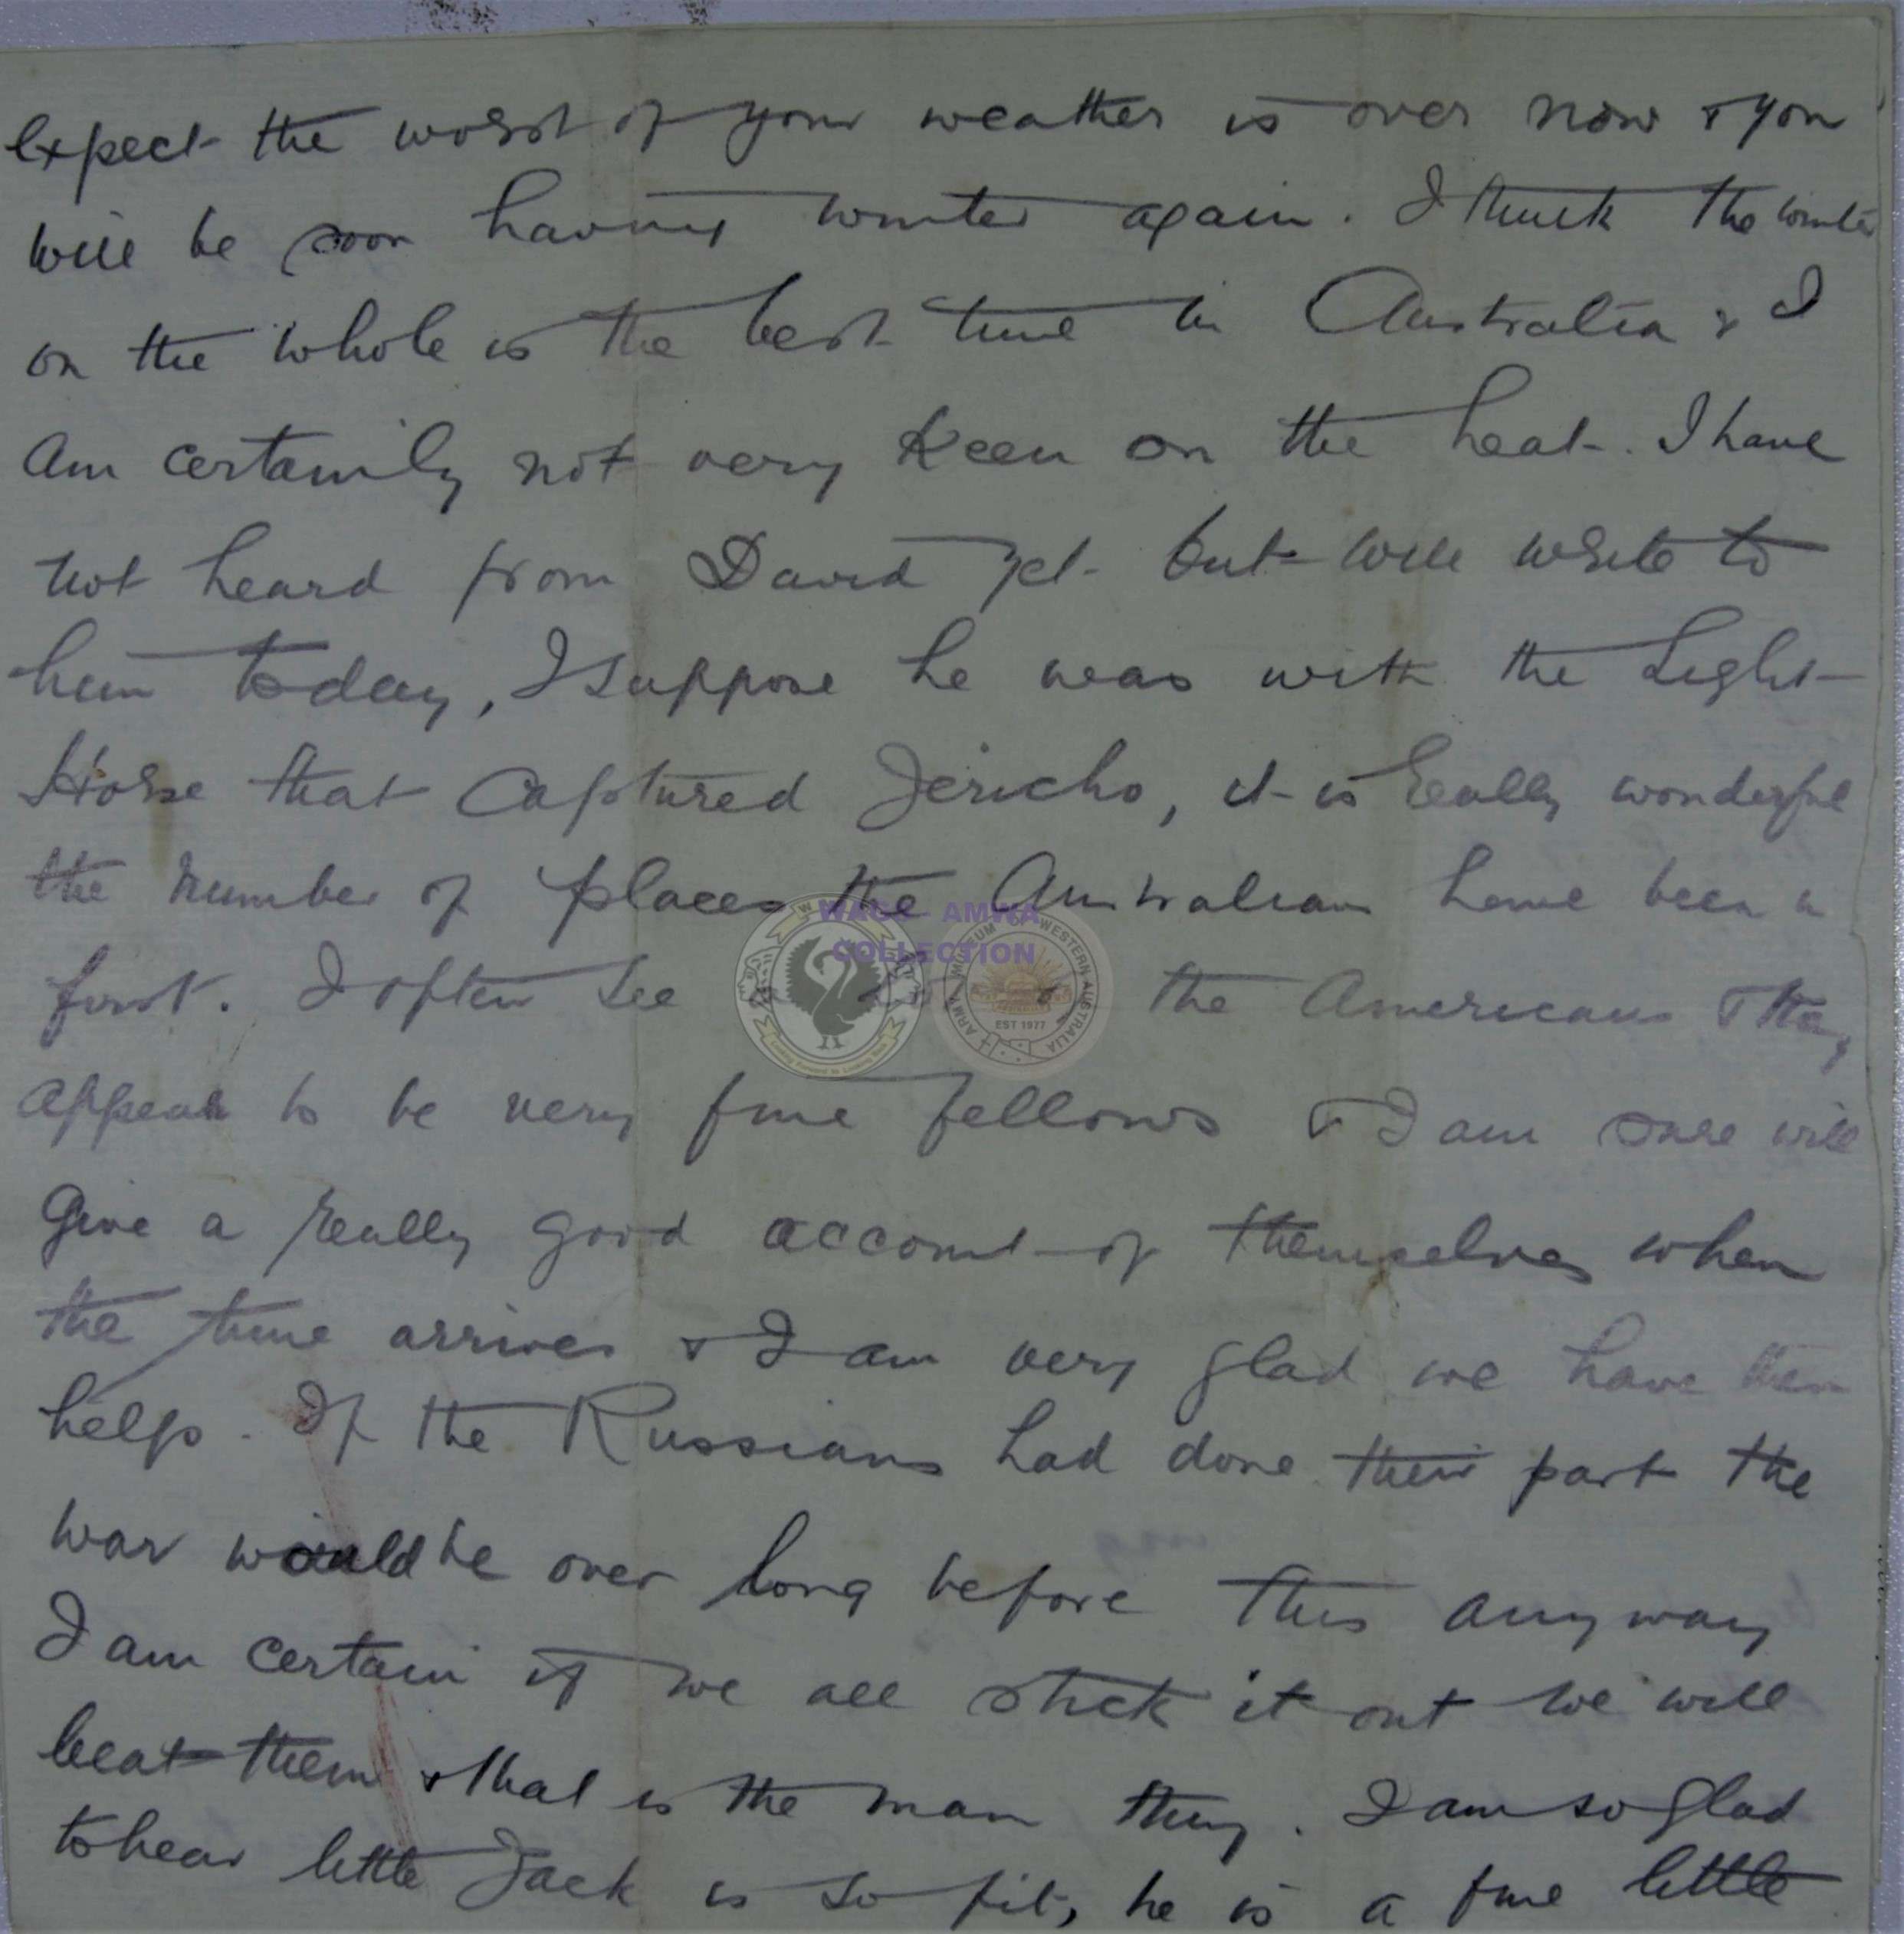 expect the worst of your weather is over now & you
will be soon having winter again. I think the winter
on the whole is the best time in Australia & I
am certainly not very keen on the heat. I have
not heard from David yet but will write to
him today, I suppose he was with the Light
Horse that captured Jericho, it is really wonderful
the number of places the Australian have been in
first. I often see the Americans & they
appear to be very fine fellows & I am sure will
give a really good account of themselves when
the time arrives & I am very glad we have their
help. If the Russians had done their part the
war would be over long before this anyway
I am certain if we all stick it out we will
beat them & that is the main thing. I am so glad
to hear little Jack is so fit, he is a fine little
WAGS AMWA
COLLECTION
ARMY MUSEUM OF WESTERN AUSTRALIA
EST 1977